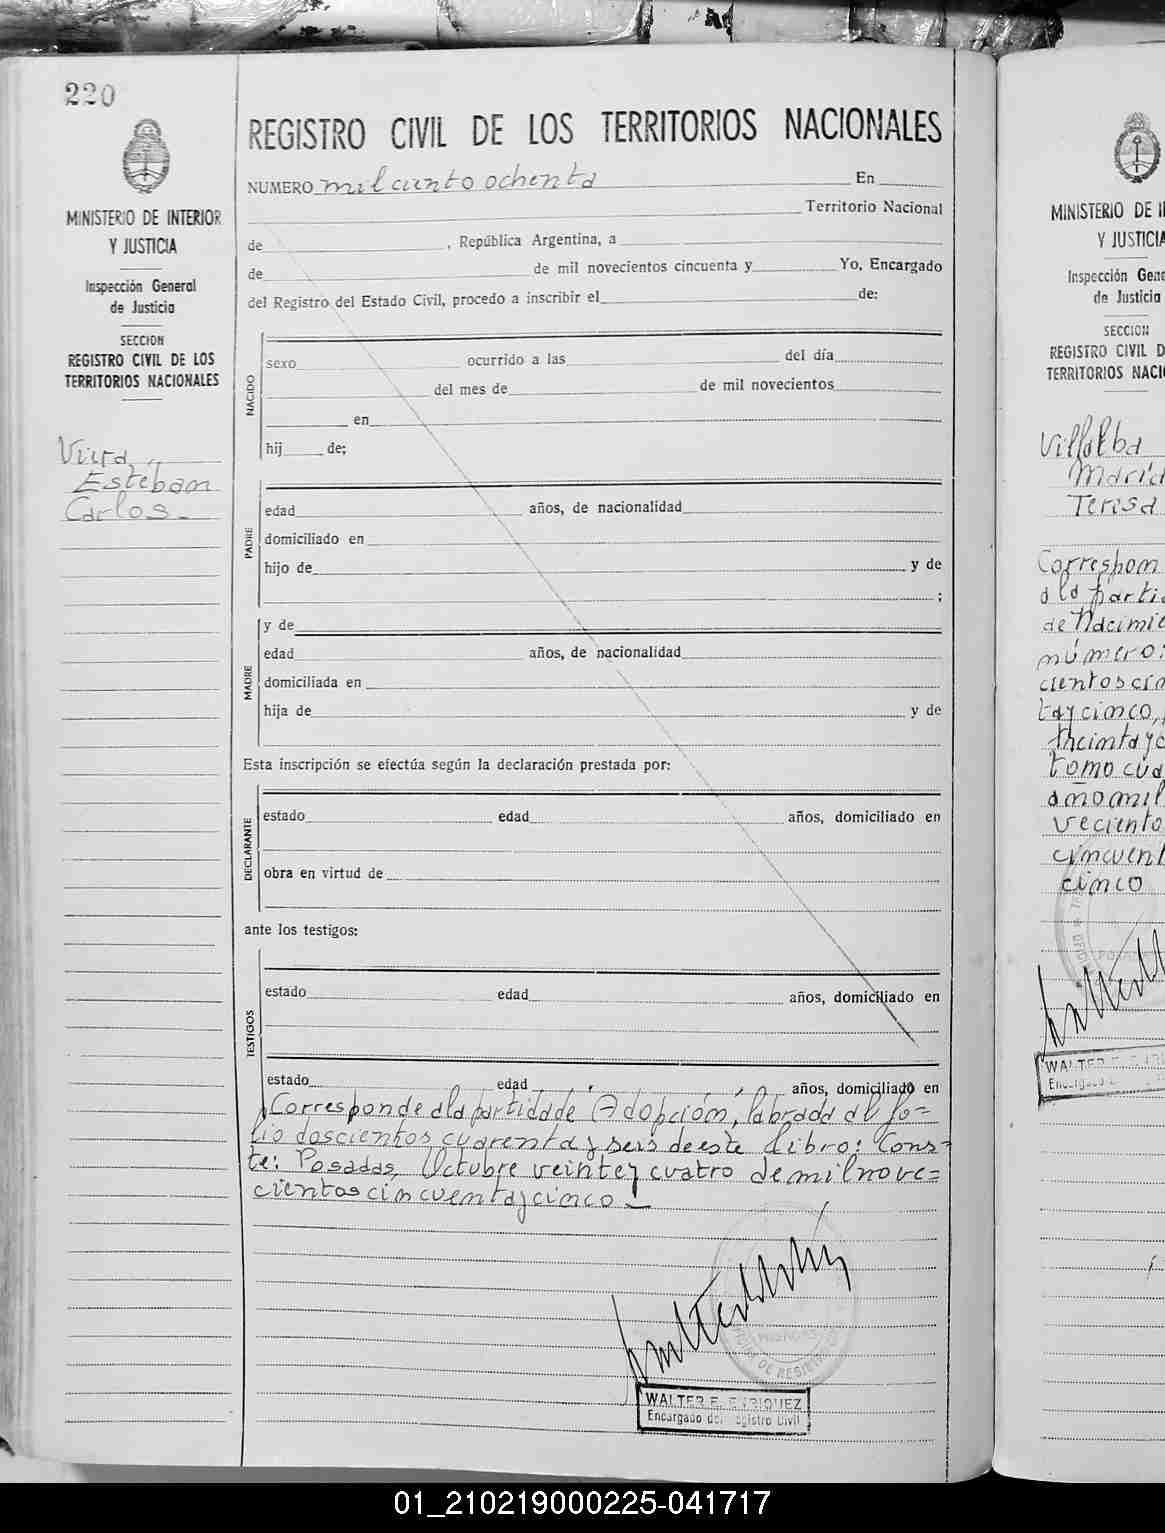 220
MINISTERIO DE INTERIOR
Y JUSTICIA
Inspección General
de Justicia
SECCION
REGISTRO CIVIL DE LOS
TERRITORIOS NACIONALES
Viera,
Esteban
Carlos.-
REGISTRO CIVIL DE LOS TERRITORIOS NACIONALES
NUMERO mil ciento ochenta En
Territorio Nacional
de , República Argentina, a
de de mil novecientos cincuenta y Yo, Encargado
del Registro del Estado Civil, procedo a inscribir el de:
NACIDO
sexo ocurrido a las del día
del mes de de mil novecientos
en
hij de;
PADRE
edad años, de nacionalidad
domiciliado en
hijo de y de
;
MADRE
y de
edad años, de nacionalidad
domiciliada en
hija de y de
Esta inscripción se efectúa según la declaración prestada por:
DECLARANTE
estado edad años, domiciliado en
obra en virtud de
ante los testigos:
TESTIGOS
estado edad años, domiciliado en
estado edad años, domiciliado en
Corresponde a la partida de Adopción, labrada al fo=
lio doscientos cuarenta y seis de este libro: Cons=
te: Posadas, Octubre veinte y cuatro de mil nove=
cientos cincuenta y cinco.-
POSADAS
WALTER E. ENRIQUEZ
Encargado del Registro Civil
MINISTERIO DE I
Y JUSTICIA
Inspección Gene
de Justicia
SECCION
REGISTRO CIVIL D
TERRITORIOS NACI
Villalba
María
Teresa
Correspon
a la parti
de Nacimie
número:
cientos cin
ta y cinco,
treinta y c
tomo cua
año mil
veciento
cincuent
cinco
WALTER E. ENRI
01_210219000225-041717